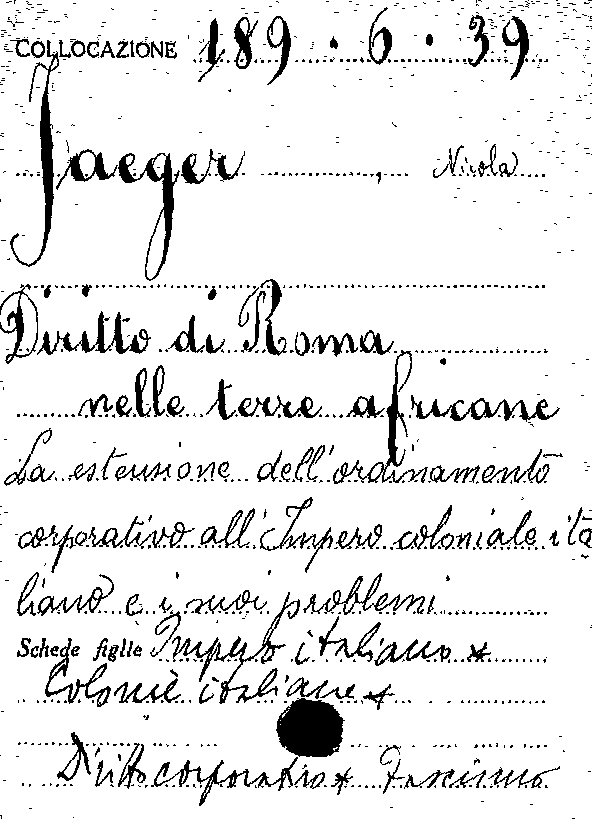 COLLOCAZIONE 189 . 6 . 39
Jaeger , Nicola
Diritto di Roma
nelle terre africane
La estensione dell'ordinamento
corporativo all'Impero coloniale ita
liano e i suoi problemi
Schede figlie Impero italiano *
Colonie italiane *
Diritto corporativo * Fascismo